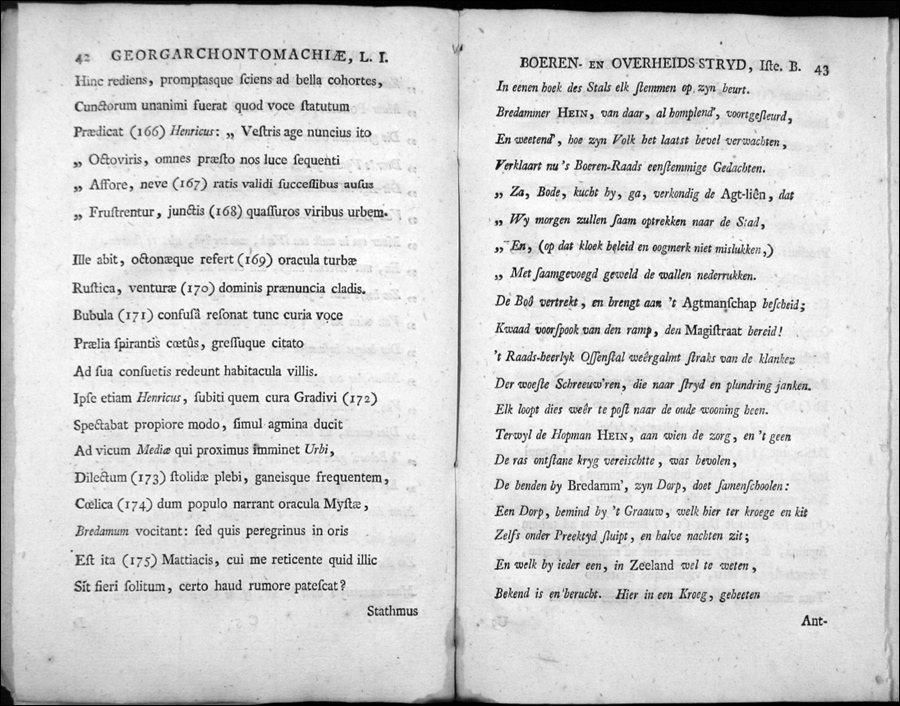 42 GEORGARCHONTOMACHIÆ, L. I.
Hinc rediens, promptasque ſciens ad bella cohortes,
Cunctorum unanimi fuerat quod voce ſtatutum
Prædicat (166) Henricus: „ Veſtris age nuncius ito
„ Octoviris, omnes præſto nos luce ſequenti
„ Affore, neve (167) ratis validi ſucceſſibus auſus
„ Fruſtrentur, junctis (168) quaſſuros viribus urbem.
Ille abit, octonæque refert (169) oracula turbæ
Ruſtica, venturæ (170) dominis prænuncia cladis.
Bubula (171) confuſâ reſonat tunc curia voce
Prælia ſpirantis cœtûs, greſſuque citato
Ad ſua conſuetis redeunt habitacula villis.
Ipſe etiam Henricus, ſubiti quem cura Gradivi (172)
Spectabat propiore modo, ſimul agmina ducit
Ad vicum Mediæ qui proximus imminet Urbi,
Dilectum (173) ſtolidæ plebi, ganeisque frequentem,
Cœlica (174) dum populo narrant oracula Myſtæ,
Bredamum vocitant: ſed quis peregrinus in oris
Eſt ita (175) Mattiacis, cui me reticente quid illic
Sit fieri ſolitum, certo haud rumore pateſcat?
Stathmus
BOEREN- EN OVERHEIDS STRYD, Iſte. B. 43
In eenen hoek des Stals elk ſtemmen op zyn beurt.
Bredammer HEIN, van daar, al homplend', voortgeſleurd,
En weetend', hoe zyn Volk het laatst bevel verwachten,
Verklaart nu 's Boeren-Raads eenſtemmige Gedachten.
„ Za, Bode, kucht hy, ga, verkondig de Agt-liên, dat
„ Wy morgen zullen ſaam optrekken naar de Stad,
„ En, (op dat kloek beleid en oogmerk niet mislukken,)
„ Met ſaamgevoegd geweld de wallen nederrukken.
De Boô vertrekt, en brengt aan 't Agtmanſchap beſcheid;
Kwaad voorſpook van den ramp, den Magiſtraat bereid!
't Raads-heerlyk Oſſenſtal weêrgalmt ſtraks van de klanken
Der woeſte Schreeuw'ren, die naar ſtryd en plundring janken.
Elk loopt dies weêr te poſt naar de oude wooning heen.
Terwyl de Hopman HEIN, aan wien de zorg, en 't geen
De ras ontſtane kryg vereischtte, was bevolen,
De benden by Bredamm', zyn Dorp, doet ſamenſchoolen:
Een Dorp, bemind by 't Graauw, welk hier ter kroege en kit
Zelfs onder Preektyd ſluipt, en halve nachten zit;
En welk by ieder een, in Zeeland wel te weten,
Bekend is en berucht. Hier in een Kroeg, geheeten
Ant-